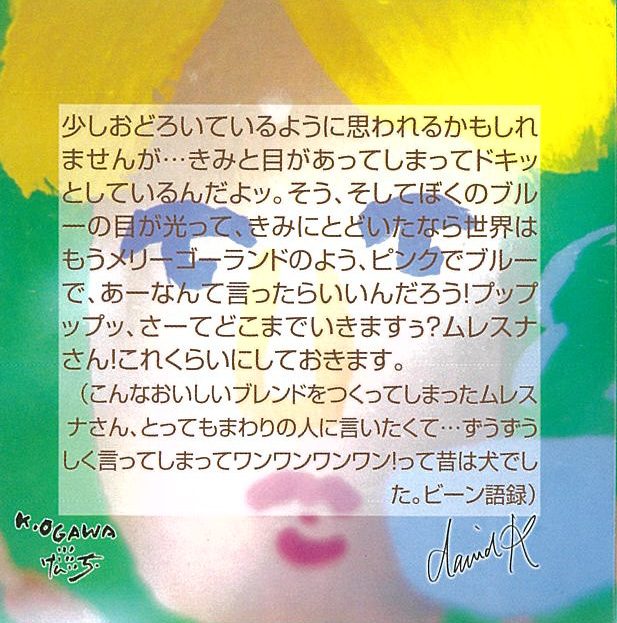 少しおどろいているように思われるかもしれ
ませんが…きみと目があってしまってドキッ
としているんだよッ。そう、そしてぼくのブル
ーの目が光って、きみにとどいたなら世界は
もうメリーゴーランドのよう、ピンクでブルー
で、あーなんて言ったらいいんだろう!プップ
ップッ、さーてどこまでいきますぅ?ムレスナ
さん!これくらいにしておきます。
(こんなおいしいブレンドをつくってしまったムレス
ナさん、とってもまわりの人に言いたくて…ずうずう
しく言ってしまってワンワンワンワン!って昔は犬でし
た。ビーン語録)
K.OGAWA
david K